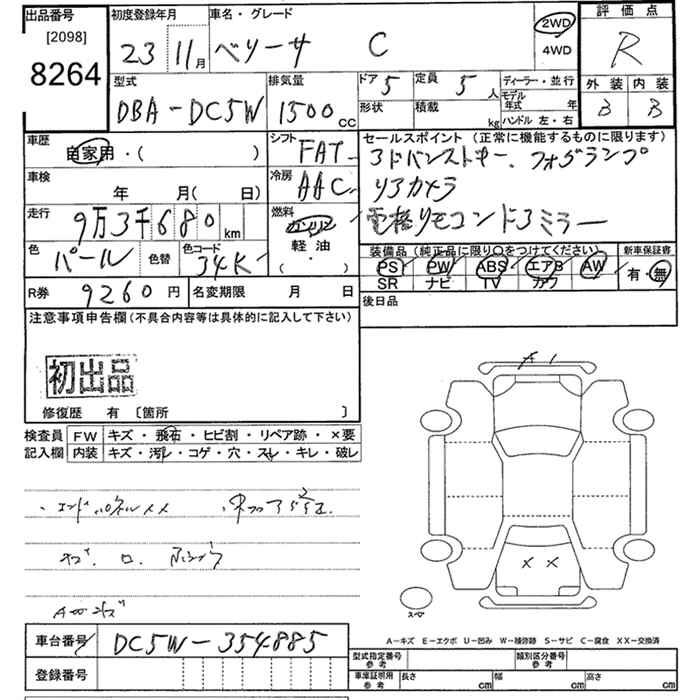 出品番号
[2098]
8264
初度登録年月
23 11月
車名・グレード
ベリーサ C
2WD
4WD
評価点
R
外装 内装
B B
型式
DBA-DC5W
排気量
1500cc
ドア 5
形状
定員 5人
積載 kg
ディーラー・並行
モデル年式 年
ハンドル 左・右
車歴
自家用・( )
車検
年 月( 日)
走行
9万3千680km
色
パール
色替
色コード
34K
シフト
FAT
冷房
AAC
燃料
ガソリン
軽油
( ・ )
セールスポイント(正常に機能するものに限ります)
アドバンストキー、フォグランプ
リアカメラ
電格リモコンドアミラー
装備品(純正品に限り○をつけてください)
PS PW ABS エアB AW
SR ナビ TV カワ
新車保証書
有・無
後日品
R券 9260円
名変期限 月 日
注意事項申告欄(不具合内容等は具体的に記入して下さい)
初出品
修復歴 有 〔箇所 〕
検査員記入欄
FW キズ・飛石・ヒビ割・リペア跡・×要
内装 キズ・汚レ・コゲ・穴・スレ・キレ・破レ
・エンドパネルXX
A1
X X
スペア
車台番号
DC5W-354885
登録番号
A-キズ E-エクボ U-凹み W-補修跡 S-サビ C-腐食 XX-交換済
型式指定番号 参考
類別区分番号 参考
車庫証明用 参考
長さ cm
幅 cm
高さ cm